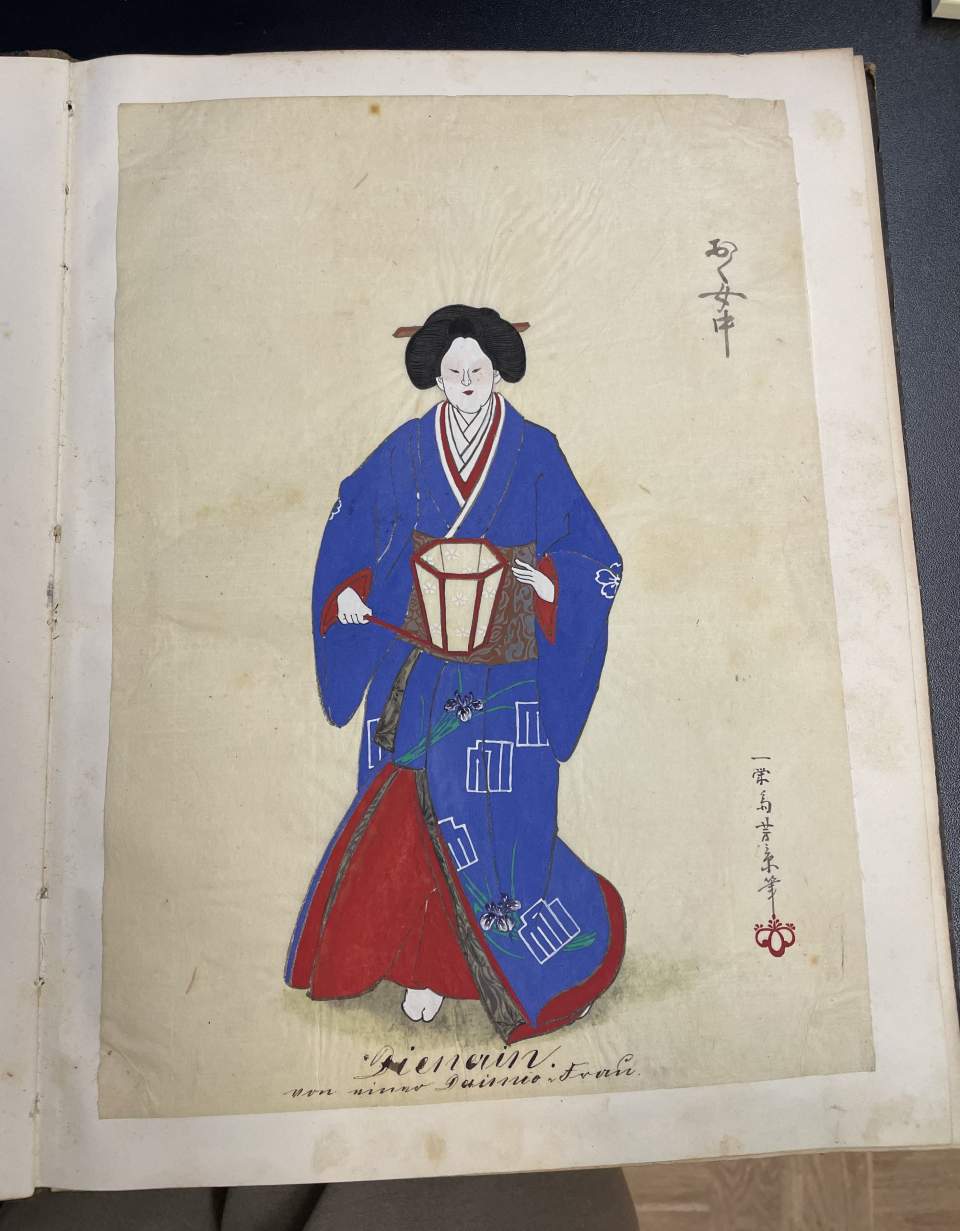 おく女中
一栄芳筆
Dienain.
von einer Daimio-Frau.